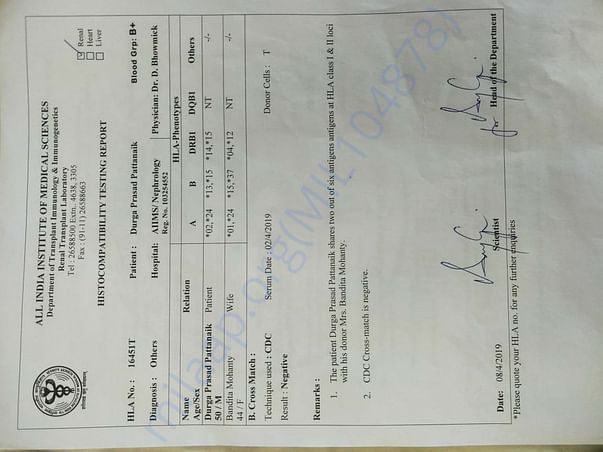 ALL INDIA INSTITUTE OF MEDICAL SCIENCES
Department of Transplant Immunology & Immunogenetics
Renal Transplant Laboratory
Tel : 26588500 Extn. 4638, 3305
Fax : (91-11) 26588663
Renal
Heart
Liver
HISTOCOMPATIBILITY TESTING REPORT
HLA No. : 16451T Patient : Durga Prasad Pattanaik Blood Grp: B+
Diagnosis : Others Hospital: AIIMS/ Nephrology Physician: Dr. D. Bhowmick
Reg. No. 103254552
HLA-Phenotypes
Name Relation A B DRB1 DQB1 Others
Age/Sex
Durga Prasad Pattanaik Patient *02,*24 *13,*15 *14,*15 NT -/-
50 / M
Bandita Mohanty Wife *01,*24 *15,*37 *04,*12 NT -/-
44 / F
B. Cross Match :
Technique used : CDC Serum Date : 02/4/2019 Donor Cells : T
Result : Negative
Remarks :
1. The patient Durga Prasad Pattanaik shares two out of six antigens antigens at HLA class I & II loci
with his donor Mrs. Bandita Mohanty.
2. CDC Cross-match is negative.
for
Date: 08/4/2019 Scientist Head of the Department
*Please quote your HLA no. for any further enquiries
milaap.org(Mil_104878)